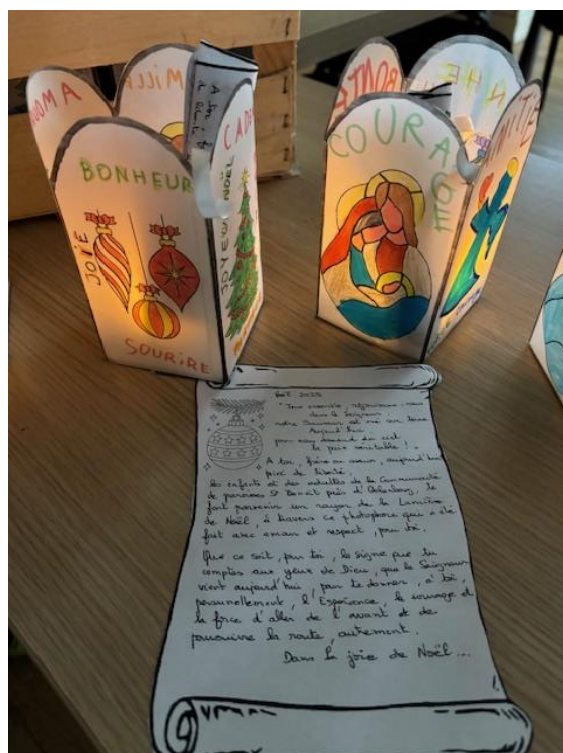 BONHEUR
JOIE
SOURIRE
JOYEUX NOËL
COURAGE
Noël 2025
"Tous ensemble, réjouissons-nous
dans le Seigneur
notre Sauveur est né sur terre
Aujourd'hui
pour nous descend du ciel
la paix véritable !"
A toi, frère ou sœur, aujourd'hui
privé de liberté,
les enfants et des adultes de la Communauté
de paroisses St Benoît près d'Ochsenberg, te
font parvenir un rayon de la Lumière
de Noël, à travers ce photophore qui a été
fait avec amour et respect, pour toi.
Que ce soit, pour toi, le signe que tu
comptes aux yeux de Dieu, que le Seigneur
vient aujourd'hui pour te donner, à toi,
personnellement, l'Espérance, le courage et
la force d'aller de l'avant et de
poursuivre la route, autrement.
Dans la joie de Noël ...